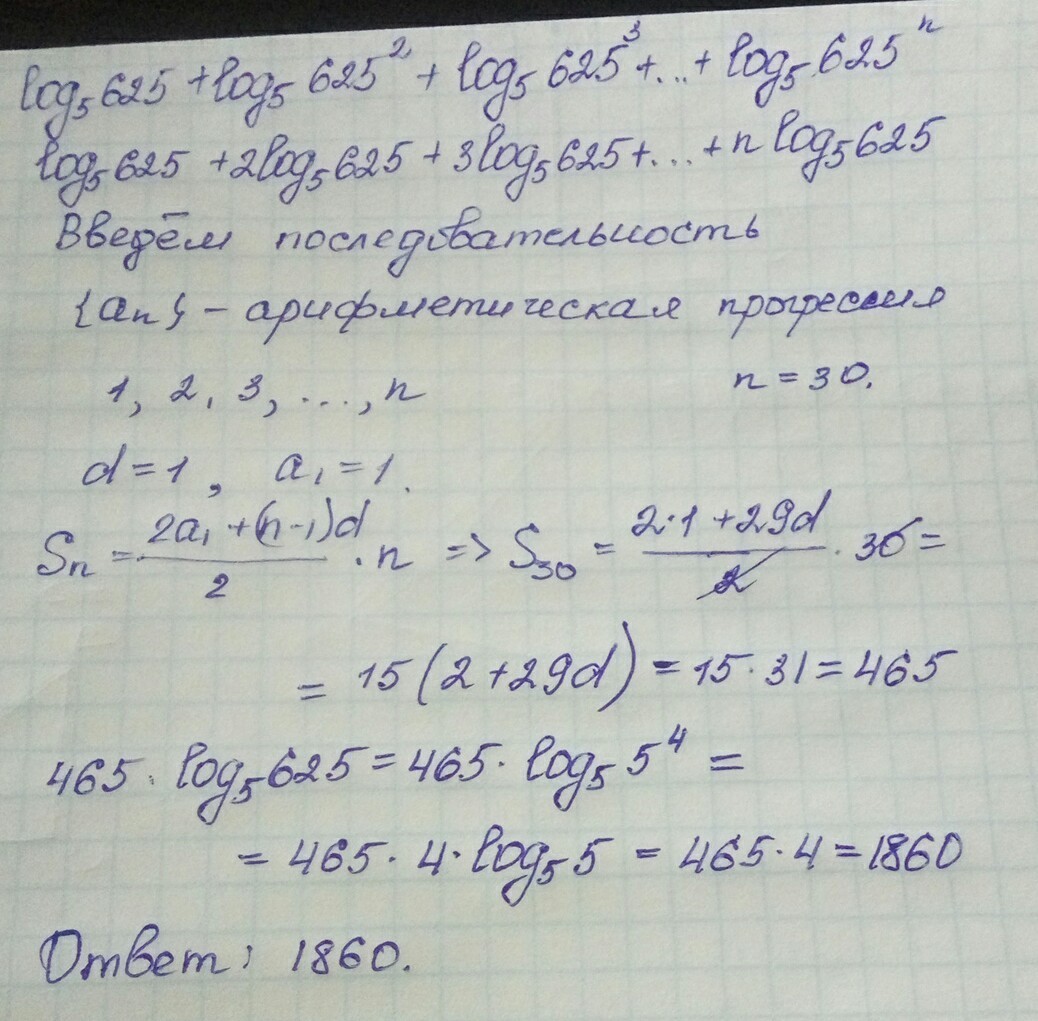 log₅625 + log₅625² + log₅625³ + ... + log₅625ⁿ
log₅625 + 2log₅625 + 3log₅625 + ... + n log₅625
Введём последовательность
{aₙ} – арифметическая прогрессия
1, 2, 3, ..., n n = 30.
d = 1, a₁ = 1.
Sₙ = (2a₁ + (n-1)d)/2 · n => S₃₀ = (2·1 + 29d)/2 · 30 =
= 15(2 + 29d) = 15·31 = 465
465 · log₅625 = 465 · log₅5⁴ =
= 465 · 4 · log₅5 = 465 · 4 = 1860
Ответ: 1860.